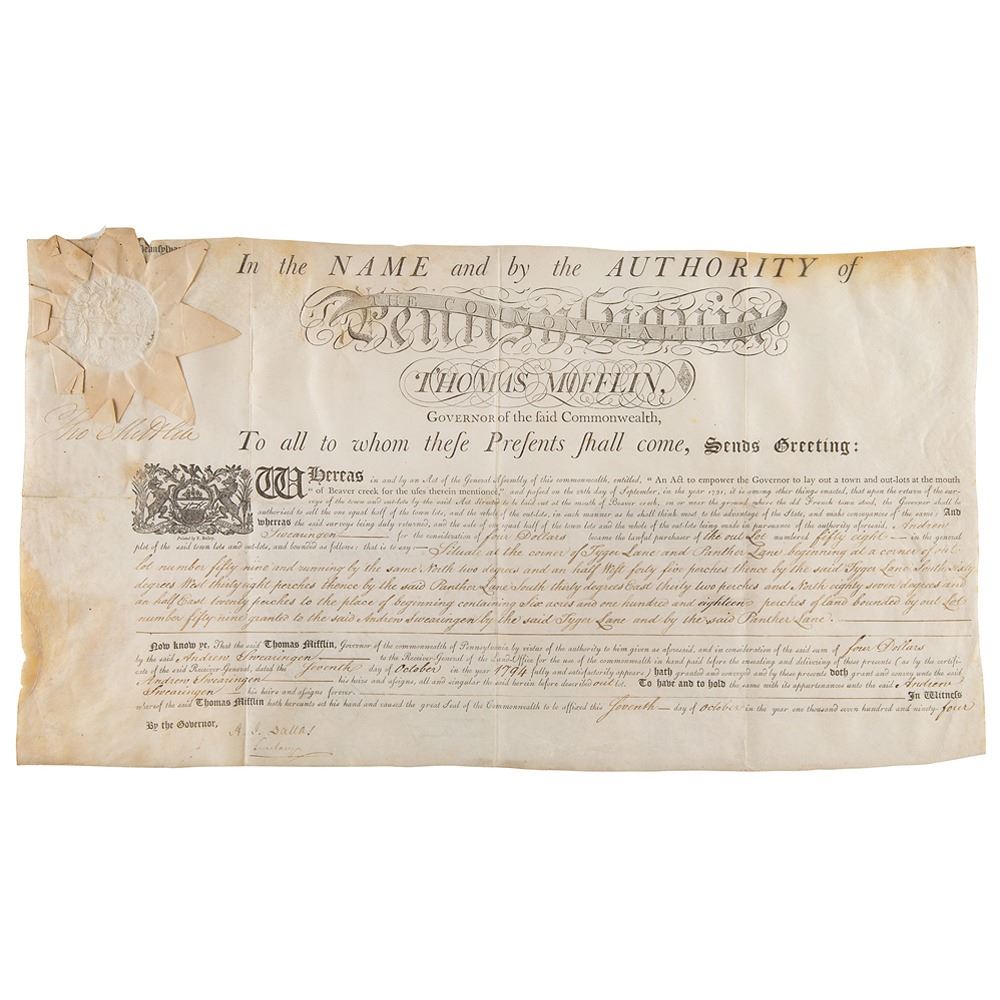 Pennsylvan
In the NAME and by the AUTHORITY of
THE COMMONWEALTH OF
Pennsylvania
THOMAS MIFFLIN,
GOVERNOR of the ſaid Commonwealth,
Tho Mifflin
To all to whom theſe Preſents ſhall come, Sends Greeting:
WHereas in and by an Act of the General Aſſembly of this commonwealth, entitled, "An Act to empower the Governor to lay out a town and out-lots at the mouth
"of Beaver creek for the uſes therein mentioned," and paſſed on the 28th day of September, in the year 1791, it is among other things enacted, that upon the return of the sur-
veys of the town and out-lots by the said Act directed to be laid out at the mouth of Beaver creek, on or near the ground where the old French town stood, the Governor shall be
authorised to sell the one equal half of the town lots, and the whole of the out-lots, in such manner as he shall think most to the advantage of the State, and make conveyances of the same: And
whereas the said surveys being duly returned, and the sale of one equal half of the town lots and the whole of the out-lots being made in pursuance of the authority aforesaid, Andrew
Printed by F. Bailey.
Swearingen for the consideration of four Dollars became the lawful purchaser of the out Lot numbered fifty eight — in the general
plot of the said town lots and out-lots, and bounded as follows: that is to say — Situate at the corner of Tyger Lane and Panther Lane beginning at a corner of out-
lot number fifty nine and running by the same North two degrees and an half West forty five perches thence by the said Tyger Lane South Sixty
degrees West thirty eight perches thence by the said Panther Lane South thirty degrees East thirty two perches and North eighty seven degrees and
an half East twenty perches to the place of beginning containing Six acres and one hundred and eighteen perches of land bounded by out Lot
number fifty nine granted to the said Andrew Swearingen by the said Tyger Lane and by the said Panther Lane.
Now know ye, That the said Thomas Mifflin, Governor of the commonwealth of Pennsylvania by virtue of the authority to him given as aforesaid, and in consideration of the said sum of four Dollars
by the said Andrew Swearingen to the Receiver-General of the Land Office for the use of the commonwealth in hand paid before the ensealing and delivering of these presents (as by the certifi-
cate of the said Receiver-General, dated the Seventh day of October in the year 1794 fully and satisfactorily appears) hath granted and conveyed and by these presents doth grant and convey unto the said
Andrew Swearingen his heirs and assigns, all and singular the said herein before described out lot. To have and to hold the same with its appurtenances unto the said Andrew
Swearingen his heirs and assigns forever. In Witness
whereof the said Thomas Mifflin hath hereunto set his hand and caused the great Seal of the Commonwealth to be affixed this Seventh — day of October in the year one thousand seven hundred and ninety-four
By the Governor, A. J. Dallas